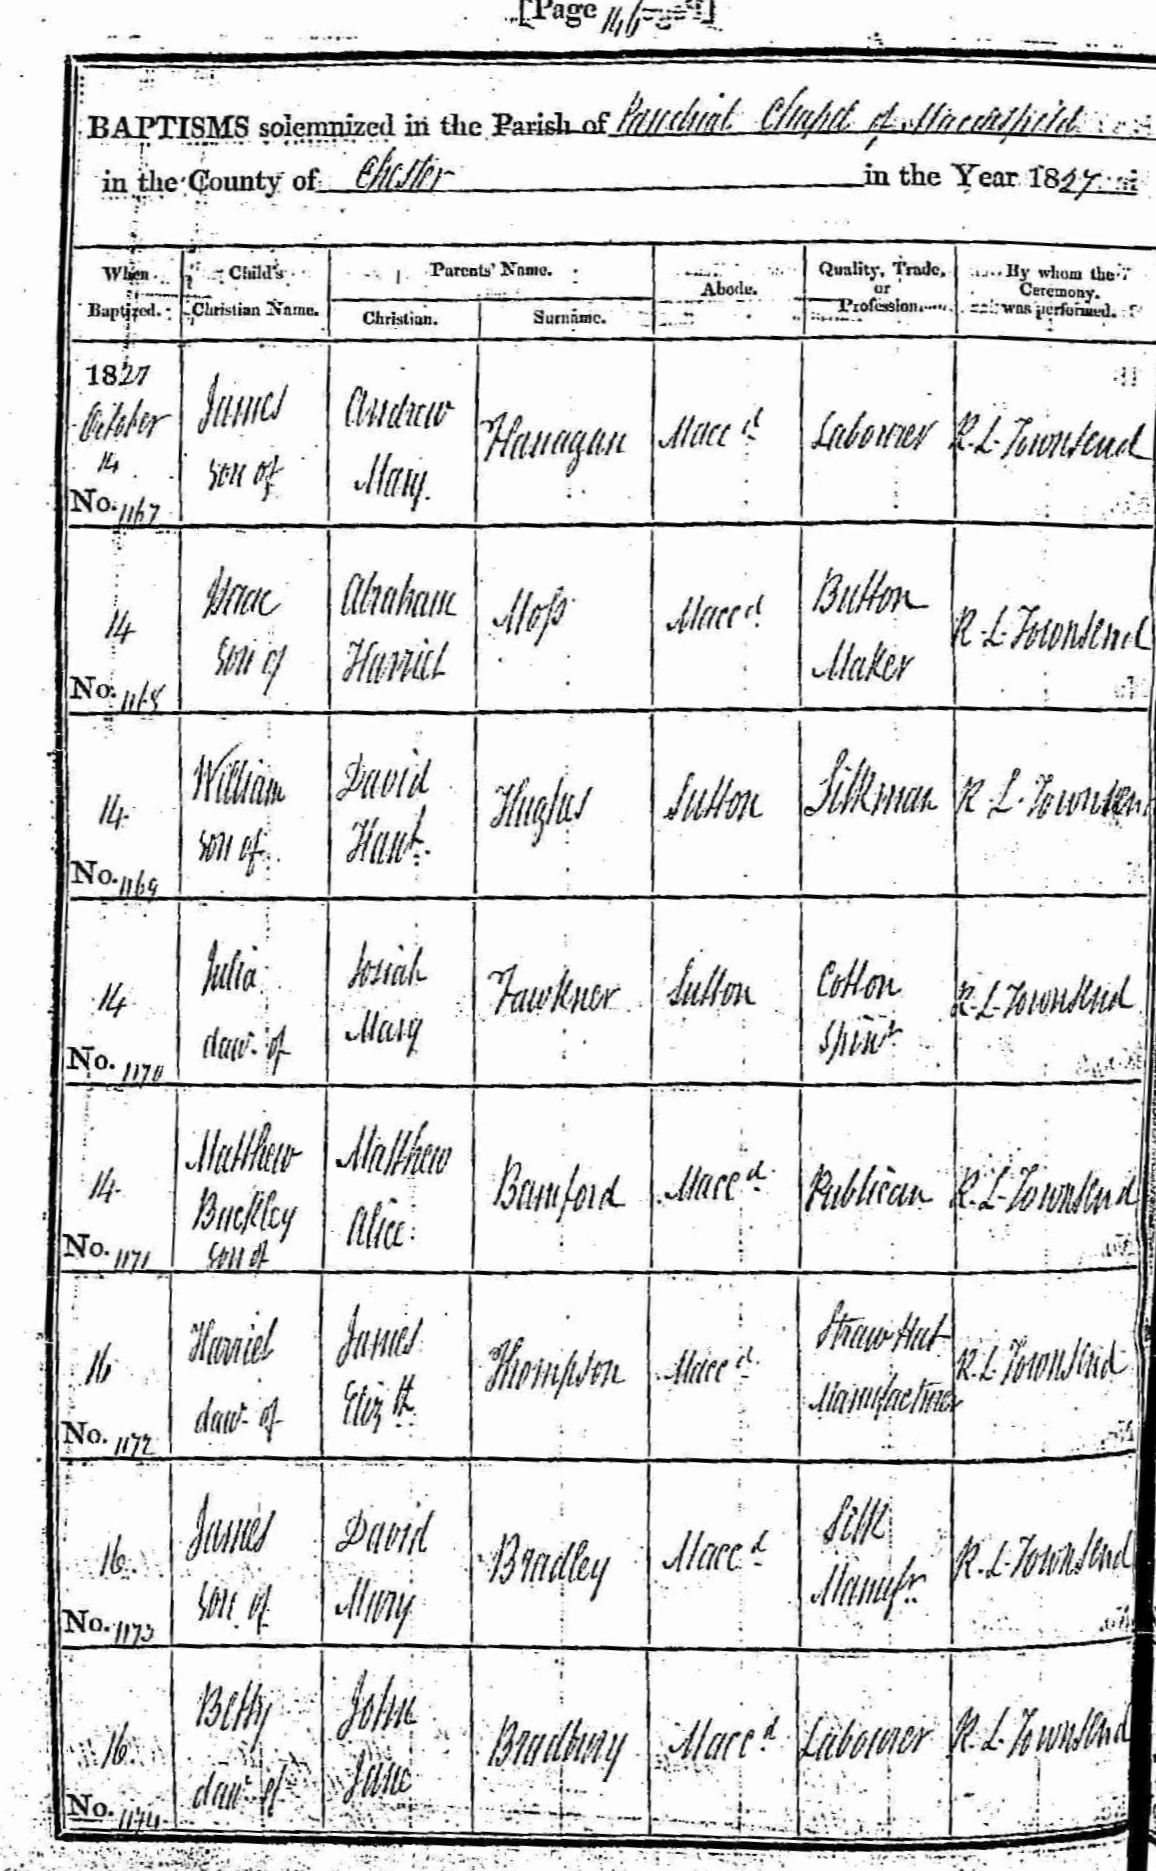 [Page 146
BAPTISMS solemnized in the Parish of Parochial Chapel of Macclesfield
in the County of Chester in the Year 1827
When Baptized. Child's Christian Name. Parents' Name. Christian. Surname. Abode. Quality, Trade, or Profession. By whom the Ceremony was performed.
1827
October James Andrew Flanagan Maccd Labourer R. L. Townsend
14 son of Mary
No. 1167
14 Isaac Abraham Moss Maccd Button R. L. Townsend
son of Harriet Maker
No. 1168
14 William David Hughes Sutton Silkman R. L. Townsend
son of Hant
No. 1169
14 Julia Josiah Fawkner Sutton Cotton R. L. Townsend
daur of Mary Spinr
No. 1170
14 Matthew Matthew Bamford Maccd Publican R. L. Townsend
Buckley Alice
son of
No. 1171
16 Harriet James Thompson Maccd Straw Hat R. L. Townsend
daur of Elizth Manufacturer
No. 1172
16 James David Bradley Maccd Silk R. L. Townsend
son of Mary Manufr
No. 1173
16 Betty John Bradbury Maccd Labourer R. L. Townsend
daur of Jane
No. 1174